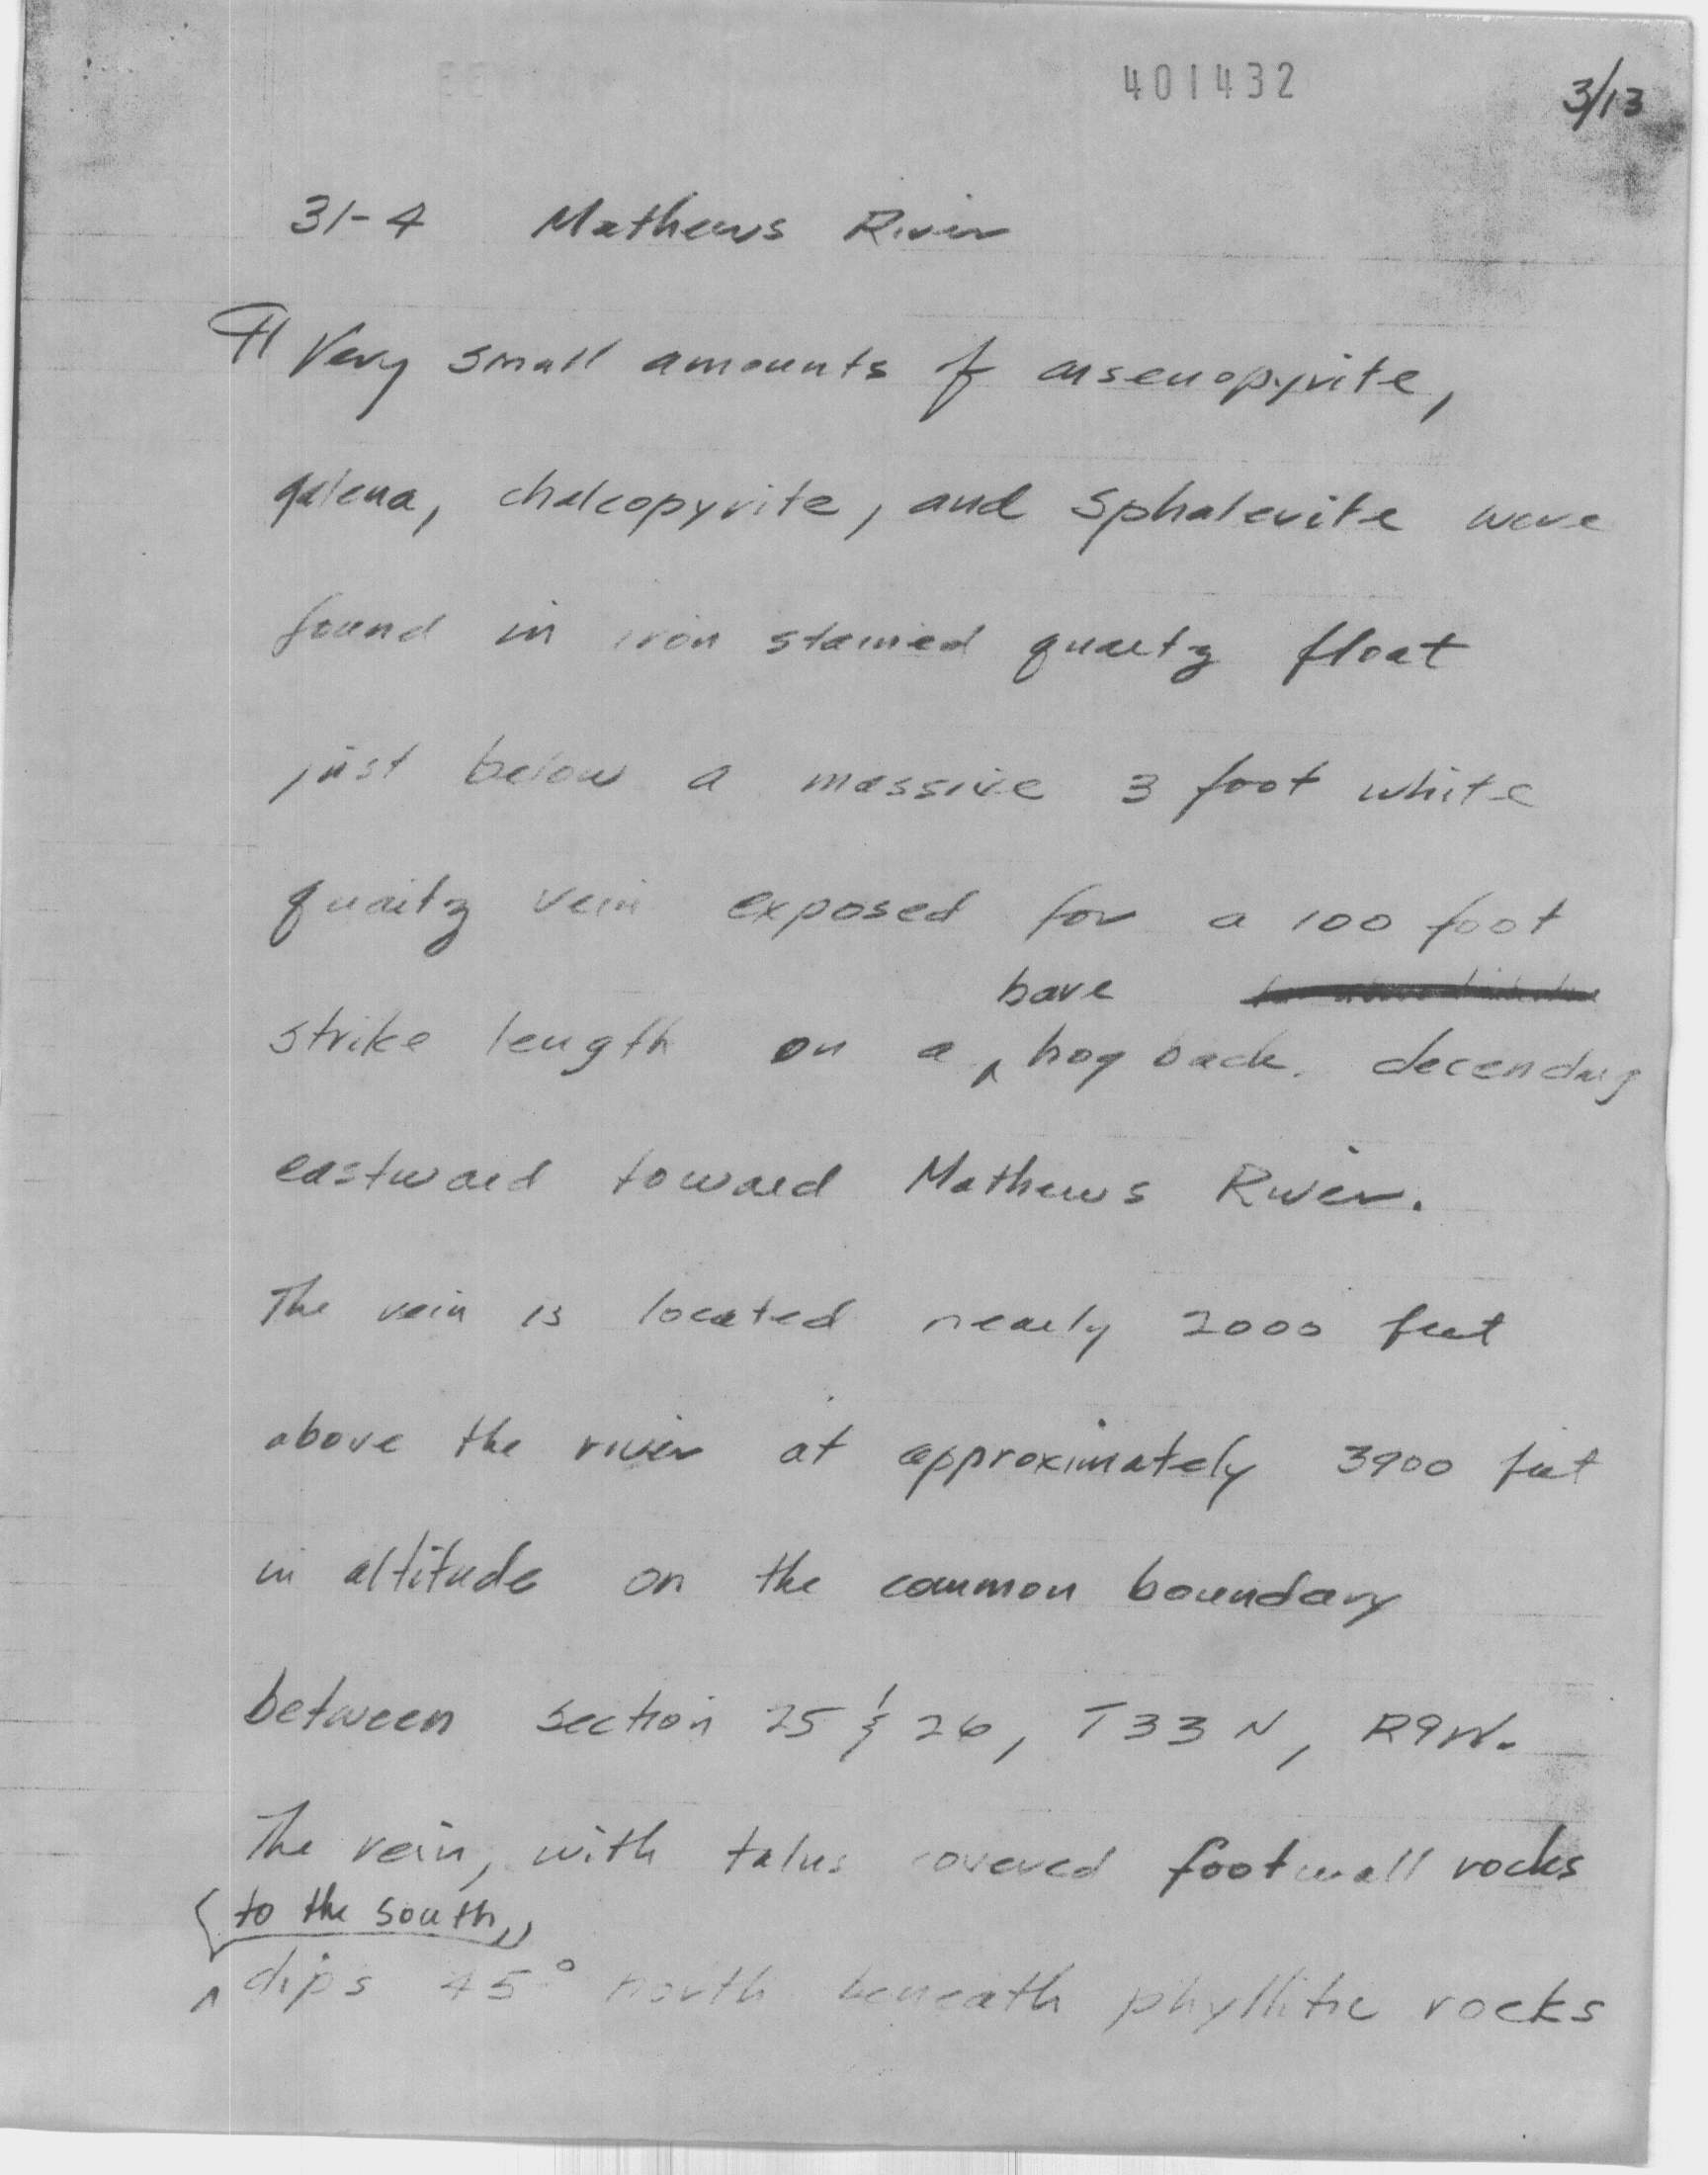 401432
3/13
31-4 Mathews River
¶ Very small amounts of arsenopyrite,
galena, chalcopyrite, and sphalerite were
found in iron stained quartz float
just below a massive 3 foot white
quartz vein exposed for a 100 foot
bare
strike length on a ^ hog back. decending
eastward toward Mathews River.
The vein is located nearly 2000 feet
above the river at approximately 3900 feet
in altitude on the common boundary
between section 25 & 26, T33N, R9W.
The vein, with talus covered footwall rocks
to the south,
^ dips 45° north beneath phyllitic rocks